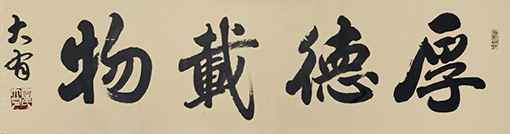 厚德載物
大有